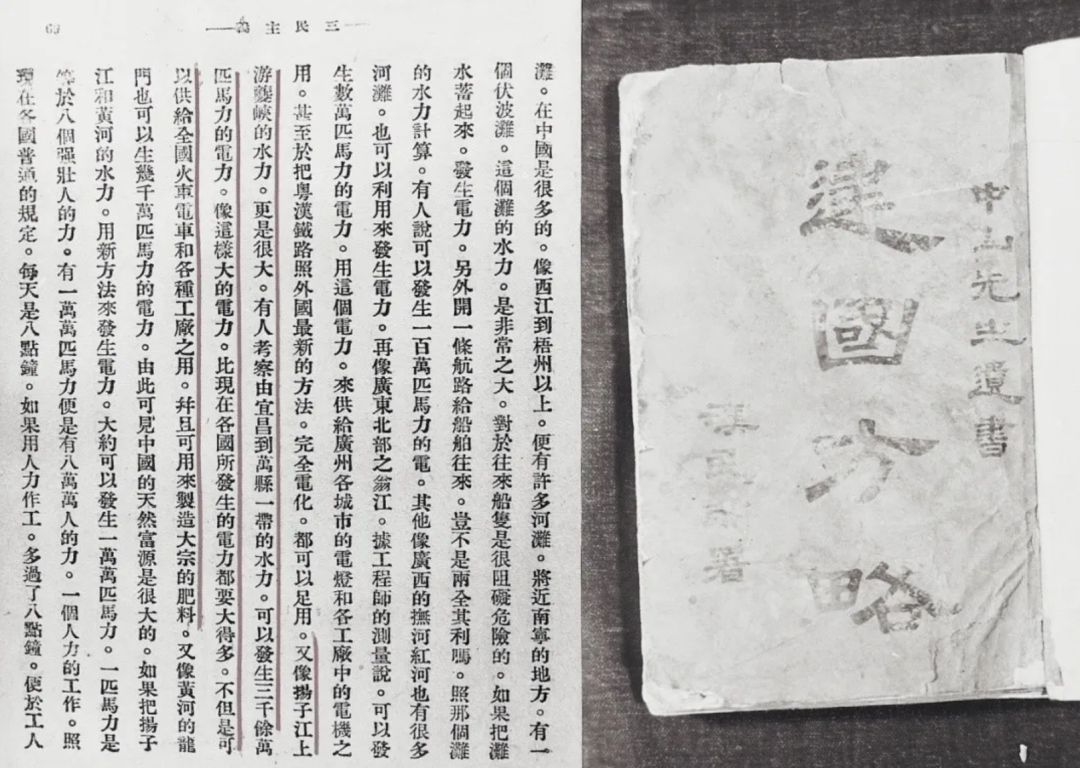 三民主義
灘。在中國是很多的。像西江到梧州以上。便有許多河灘。將近南寧的地方。有一
個伏波灘。這個灘的水力。是非常之大。對於往來船隻是很阻礙危險的。如果把灘
水蓄起來。發生電力。另外開一條航路給船舶往來。豈不是兩全其利嗎。照那個灘
的水力計算。有人說可以發生一百萬匹馬力的電。其他像廣西的撫河紅河也有很多
河灘。也可以利用來發生電力。再像廣東北部之翁江。據工程師的測量說。可以發
生數萬匹馬力的電力。用這個電力。來供給廣州各城市的電燈和各工廠中的電機之
用。甚至於把粵漢鐵路照外國最新的方法。完全電化。都可以足用。又像揚子江上
游夔峽的水力。更是很大。有人考察由宜昌到萬縣一帶的水力。可以發生三千餘萬
匹馬力的電力。像這樣大的電力。比現在各國所發生的電力都要大得多。不但是可
以供給全國火車電車和各種工廠之用。幷且可用來製造大宗的肥料。又像黃河的龍
門也可以生幾千萬匹馬力的電力。由此可見中國的天然富源是很大的。如果把揚子
江和黃河的水力。用新方法來發生電力。大約可以發生一萬萬匹馬力。一匹馬力是
等於八個强壯人的力。有一萬萬匹馬力便是有八萬萬人的力。一個人力的工作。照
現在各國普通的規定。每天是八點鐘。如果用人力作工。多過了八點鐘。便於工人
中山先生遺書
建國方略
漢民署